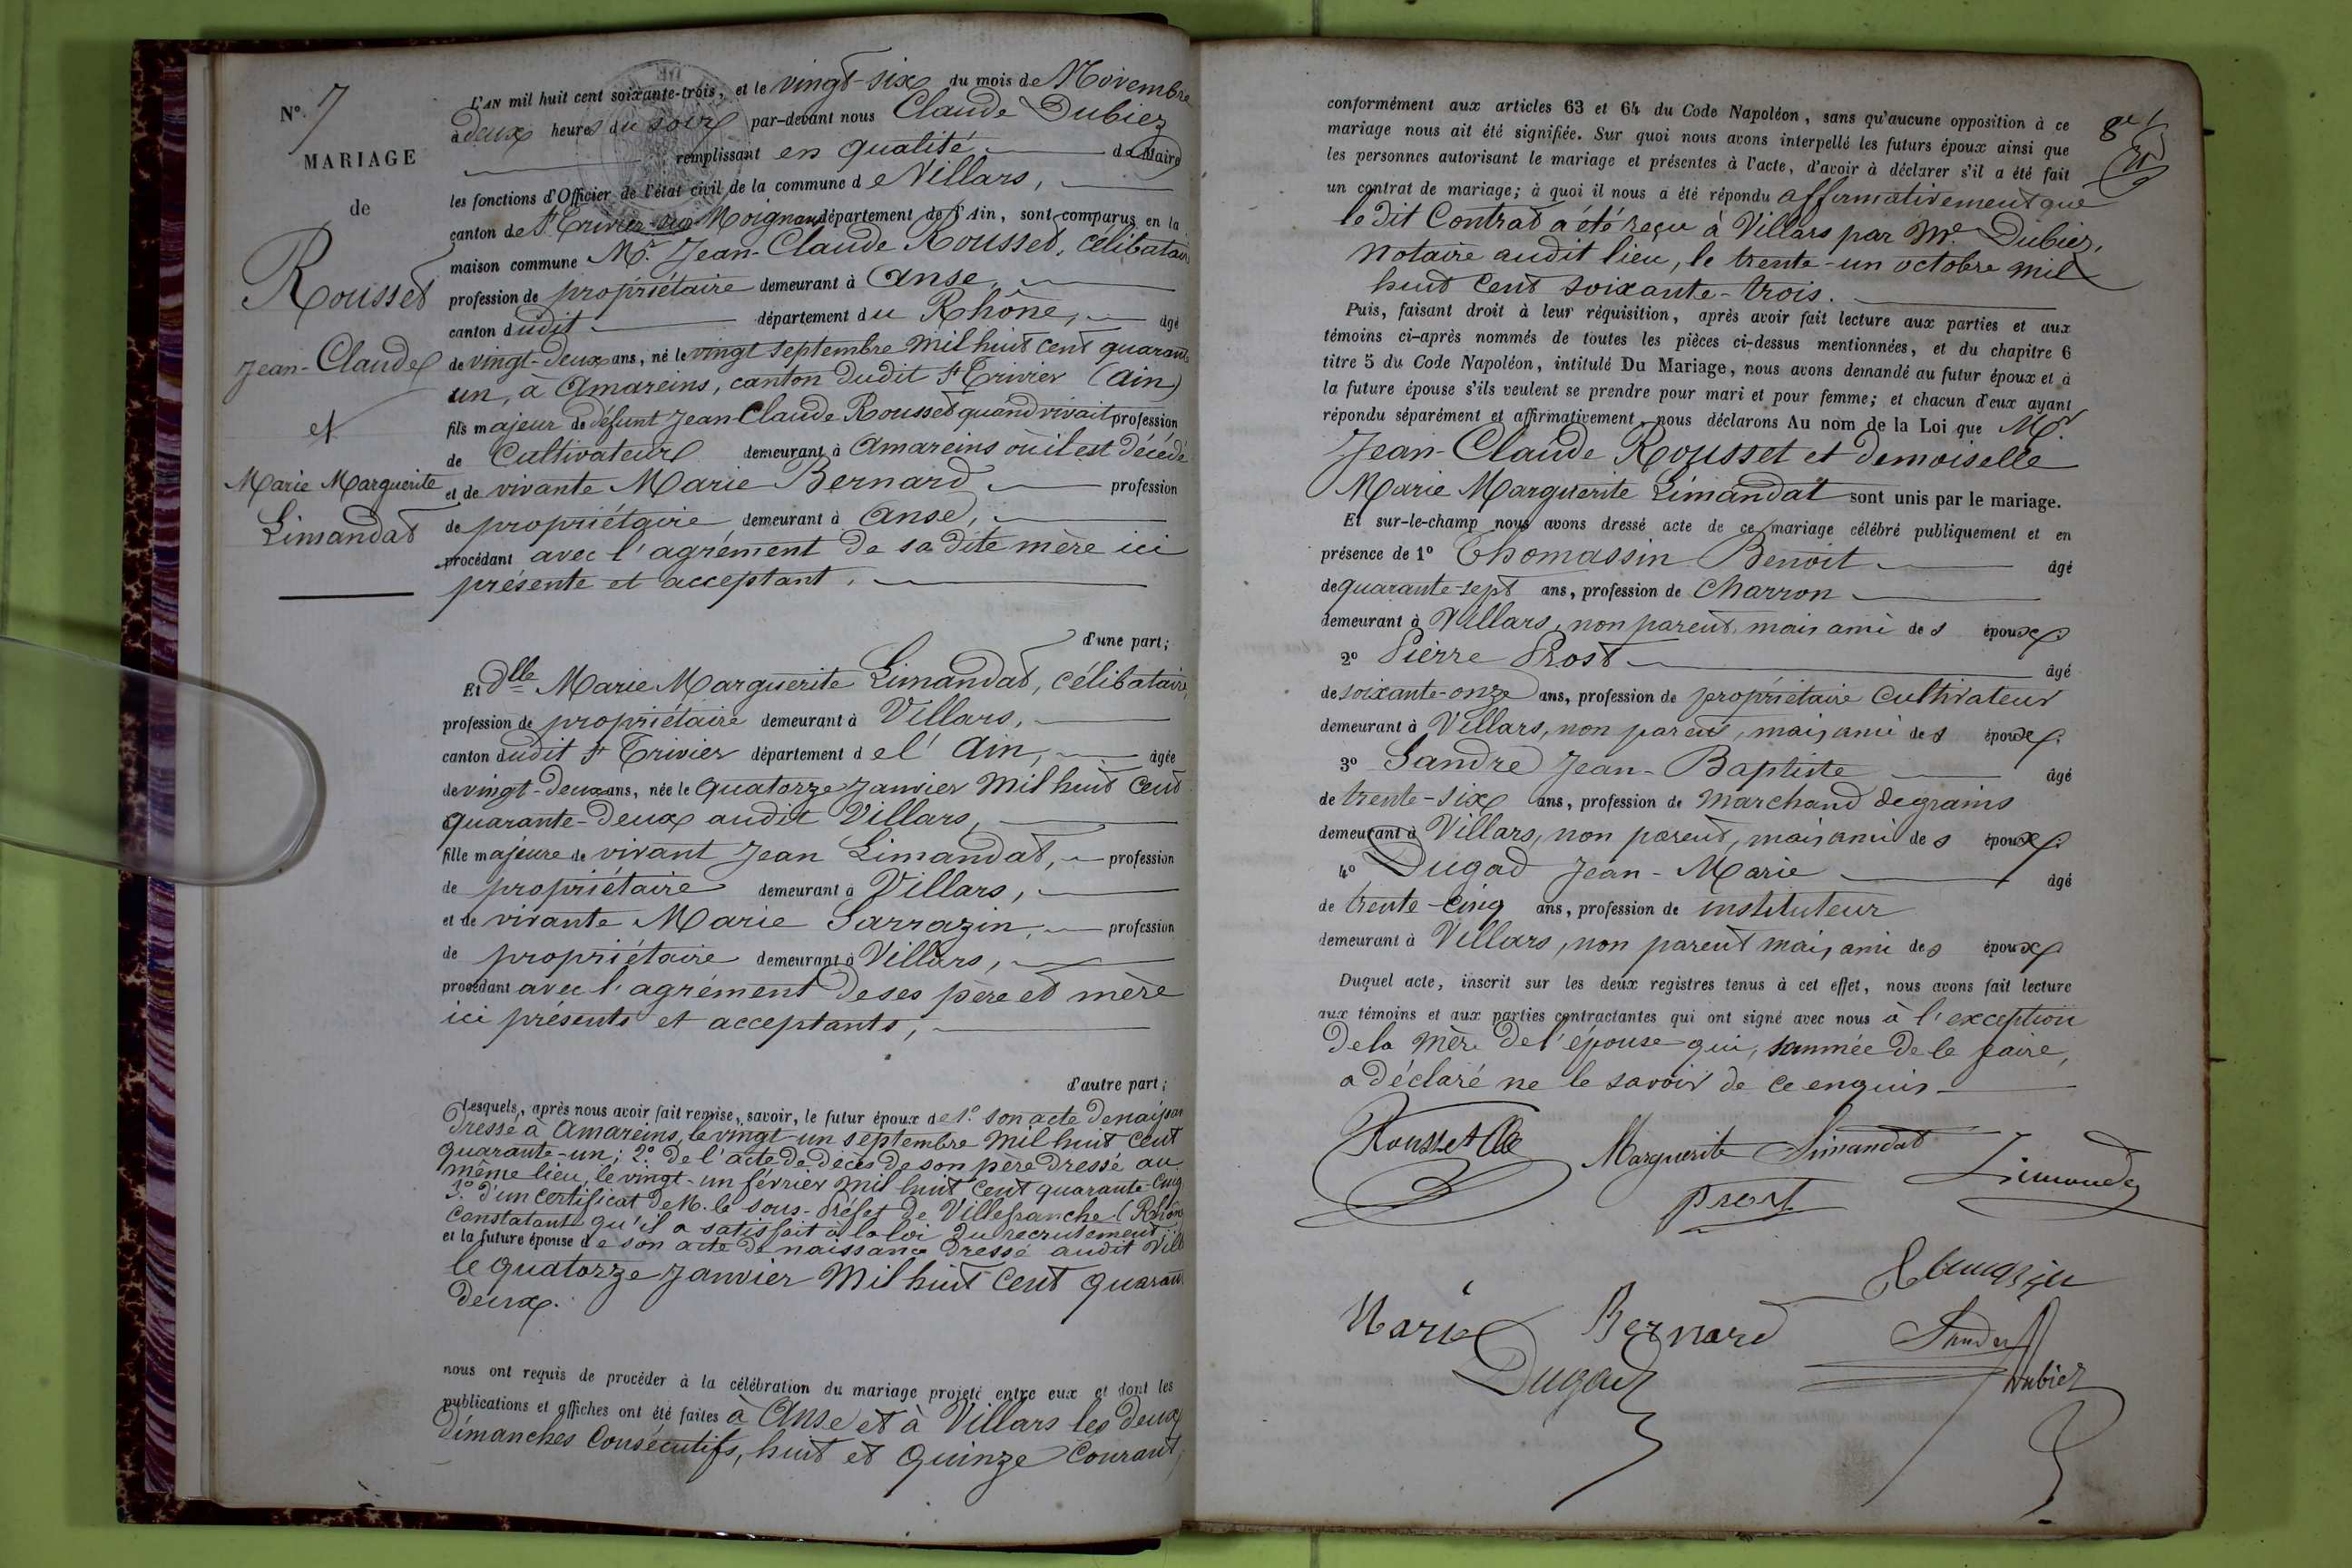 N° 7
MARIAGE
de
Rousset
Jean-Claude
et
Marie Marguerite
Limandat
L'AN mil huit cent soixante-trois, et le vingt-six du mois de Novembre
à deux heures du soir par-devant nous Claude Dubiez
remplissant en qualité de Maire
les fonctions d'Officier de l'état civil de la commune de Villars,
canton de St Trivier-sur-Moignans département de l'Ain, sont comparus en la
maison commune Mr. Jean-Claude Rousset, célibataire
profession de propriétaire demeurant à Anse,
canton dudit département du Rhône, âgé
de vingt-deux ans, né le vingt septembre mil huit cent quarante
un, à Amareins, canton dudit St Trivier (Ain)
fils majeur de défunt Jean Claude Rousset quand vivait profession
de Cultivateur demeurant à Amareins où il est décédé
et de vivante Marie Bernard profession
de propriétaire demeurant à Anse,
procédant avec l'agrément de sa dite mère ici
présente et acceptant,
d'une part;
Et Dlle Marie Marguerite Limandat, célibataire,
profession de propriétaire demeurant à Villars,
canton dudit St Trivier département de l'Ain, âgée
de vingt-deux ans, née le quatorze Janvier mil huit cent
quarante-deux audit Villars,
fille majeure de vivant Jean Limandat, profession
de propriétaire demeurant à Villars,
et de vivante Marie Sarrazin, profession
de propriétaire demeurant à Villars,
procédant avec l'agrément de ses père et mère
ici présents et acceptants,
d'autre part;
Lesquels, après nous avoir fait remise, savoir, le futur époux de 1° son acte de naissan
dressé à Amareins, le vingt-un septembre mil huit cent
quarante-un; 2° de l'acte de décès de son père dressé au
même lieu, le vingt-un février mil huit cent quarante-cinq
3° d'un certificat de M. le sous-Préfet de Villefranche (Rhône
constatant qu'il a satisfait à la loi du recrutement;
et la future épouse de son acte de naissance dressé audit Vill
le quatorze Janvier mil huit cent quaran
deux.
nous ont requis de procéder à la célébration du mariage projeté entre eux et dont les
publications et affiches ont été faites à Anse et à Villars les deux
dimanches consécutifs, huit et quinze courant,
8e
conformément aux articles 63 et 64 du Code Napoléon, sans qu'aucune opposition à ce
mariage nous ait été signifiée. Sur quoi nous avons interpellé les futurs époux ainsi que
les personnes autorisant le mariage et présentes à l'acte, d'avoir à déclarer s'il a été fait
un contrat de mariage; à quoi il nous a été répondu affirmativement que
le dit Contrat a été reçu à Villars par Me Dubiez,
Notaire audit lieu, le trente-un octobre mil
huit cent soixante-trois.
Puis, faisant droit à leur réquisition, après avoir fait lecture aux parties et aux
témoins ci-après nommés de toutes les pièces ci-dessus mentionnées, et du chapitre 6
titre 5 du Code Napoléon, intitulé Du Mariage, nous avons demandé au futur époux et à
la future épouse s'ils veulent se prendre pour mari et pour femme; et chacun d'eux ayant
répondu séparément et affirmativement, nous déclarons Au nom de la Loi que Mr.
Jean-Claude Rousset et demoiselle
Marie Marguerite Limandat sont unis par le mariage.
Et sur-le-champ nous avons dressé acte de ce mariage célébré publiquement et en
présence de 1° Thomassin Benoit âgé
de quarante-sept ans, profession de Charron
demeurant à Villars, non parent, mais ami des époux.
2° Pierre Prost âgé
de soixante-onze ans, profession de propriétaire cultivateur
demeurant à Villars, non parent, mais ami des époux.
3° Sandre Jean-Baptiste âgé
de trente-six ans, profession de marchand de grains
demeurant à Villars, non parent, mais ami des époux.
4° Dugad Jean-Marie âgé
de trente-cinq ans, profession de instituteur
demeurant à Villars, non parent mais ami des époux
Duquel acte, inscrit sur les deux registres tenus à cet effet, nous avons fait lecture
aux témoins et aux parties contractantes qui ont signé avec nous à l'exception
de la mère de l'épouse qui, sommée de le faire,
a déclaré ne le savoir de ce enquis.
Rousset Cde
Marguerite Limandat Limandat
Prost
Marie Bernard
Dugad
Dubiez